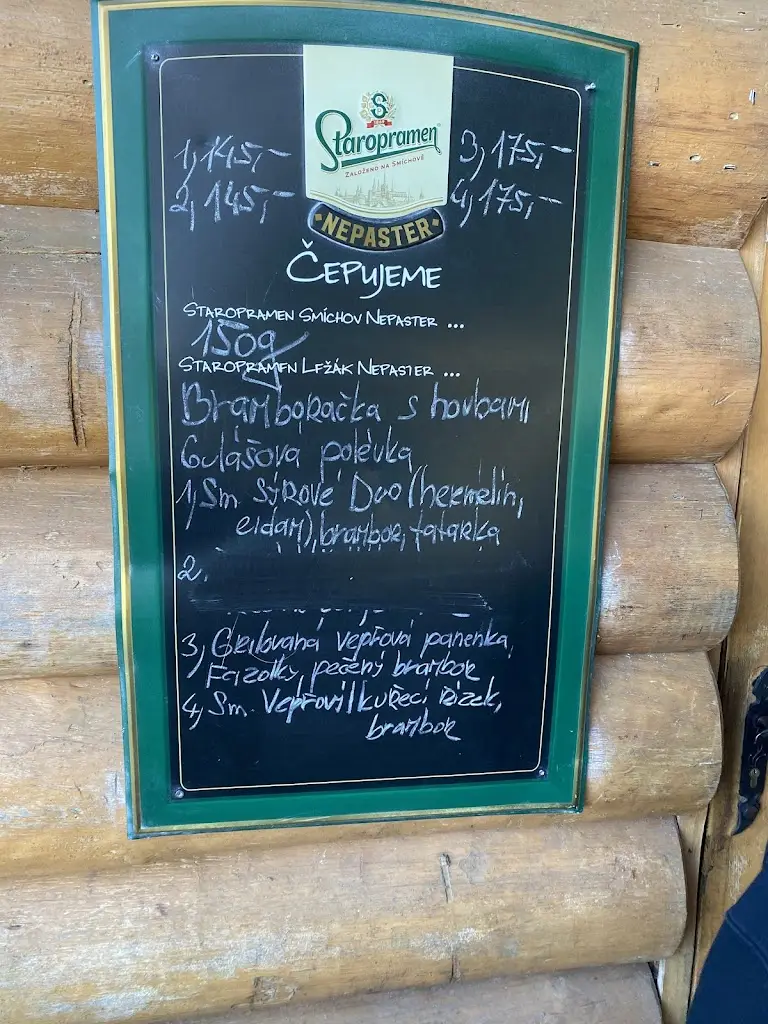 Staropramen
ZALOŽENO NA SMÍCHOVĚ
NEPASTER
1, 145,-
2, 145,-
3, 175,-
4, 175,-
ČEPUJEME
STAROPRAMEN SMÍCHOV NEPASTER ...
150g
STAROPRAMEN LEŽÁK NEPASTER ...
Bramboračka s houbami
Gulášova polévka
1, Sm. Sýrové Duo (hermelín,
eidam), brambor, tatarka
2,
3, Grilovaná vepřová panenka,
Fazolky, pečený brambor
4, Sm. Vepřový/kuřecí řízek,
brambor